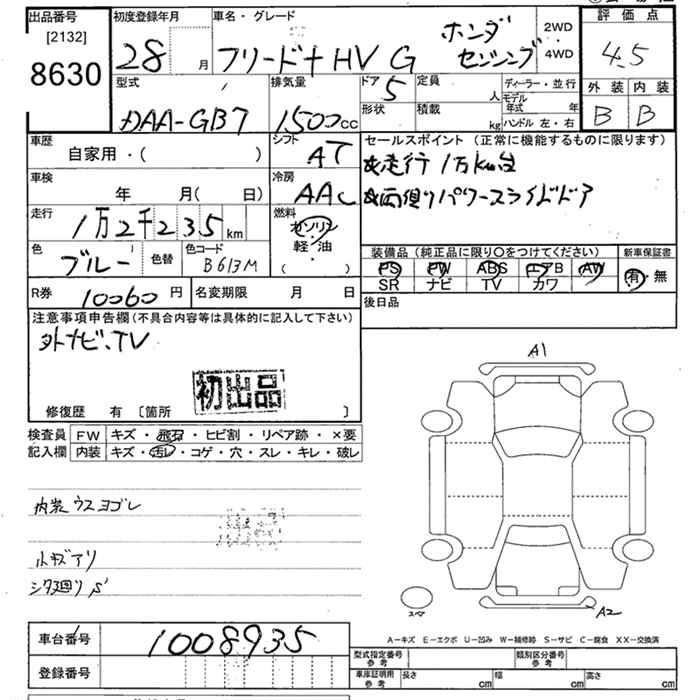 出品番号
[2132]
8630
初度登録年月
28 月
車名・グレード
フリード+ HV G ホンダ センシング
2WD
4WD
評価点
4.5
外装 内装
B B
型式
DAA-GB7
排気量
1500cc
ドア
5
形状
定員 人
積載 kg
ディーラー・並行
モデル年式 年
ハンドル 左・右
車歴
自家用・( )
シフト
AT
セールスポイント (正常に機能するものに限ります)
☆走行1万km台
☆両側りパワースライドドア
車検
年 月( 日)
冷房
AAC
走行
1万2千235km
燃料
ガソリン
軽・油
( )
色
ブルー
色替
色コード
B613M
装備品 (純正品に限り〇をつけてください)
PS PW ABS エアB AW
SR ナビ TV カワ
新車保証書
有・無
R券 10060円
名変期限 月 日
後日品
注意事項申告欄 (不具合内容等は具体的に記入して下さい)
外ナビ、TV
初出品
修復歴 有 〔箇所 〕
検査員記入欄
FW キズ・飛石・ヒビ割・リペア跡・×要
内装 キズ・汚レ・コゲ・穴・スレ・キレ・破レ
内装ウスヨゴレ
小キズアリ
シタ廻りS
A1
スペア
A2
A-キズ E-エクボ U-凹み W-補修跡 S-サビ C-腐食 XX-交換済
車台番号 1008935
登録番号
型式指定番号 参考
類別区分番号 参考
車庫証明用 参考
長さ cm
幅 cm
高さ cm